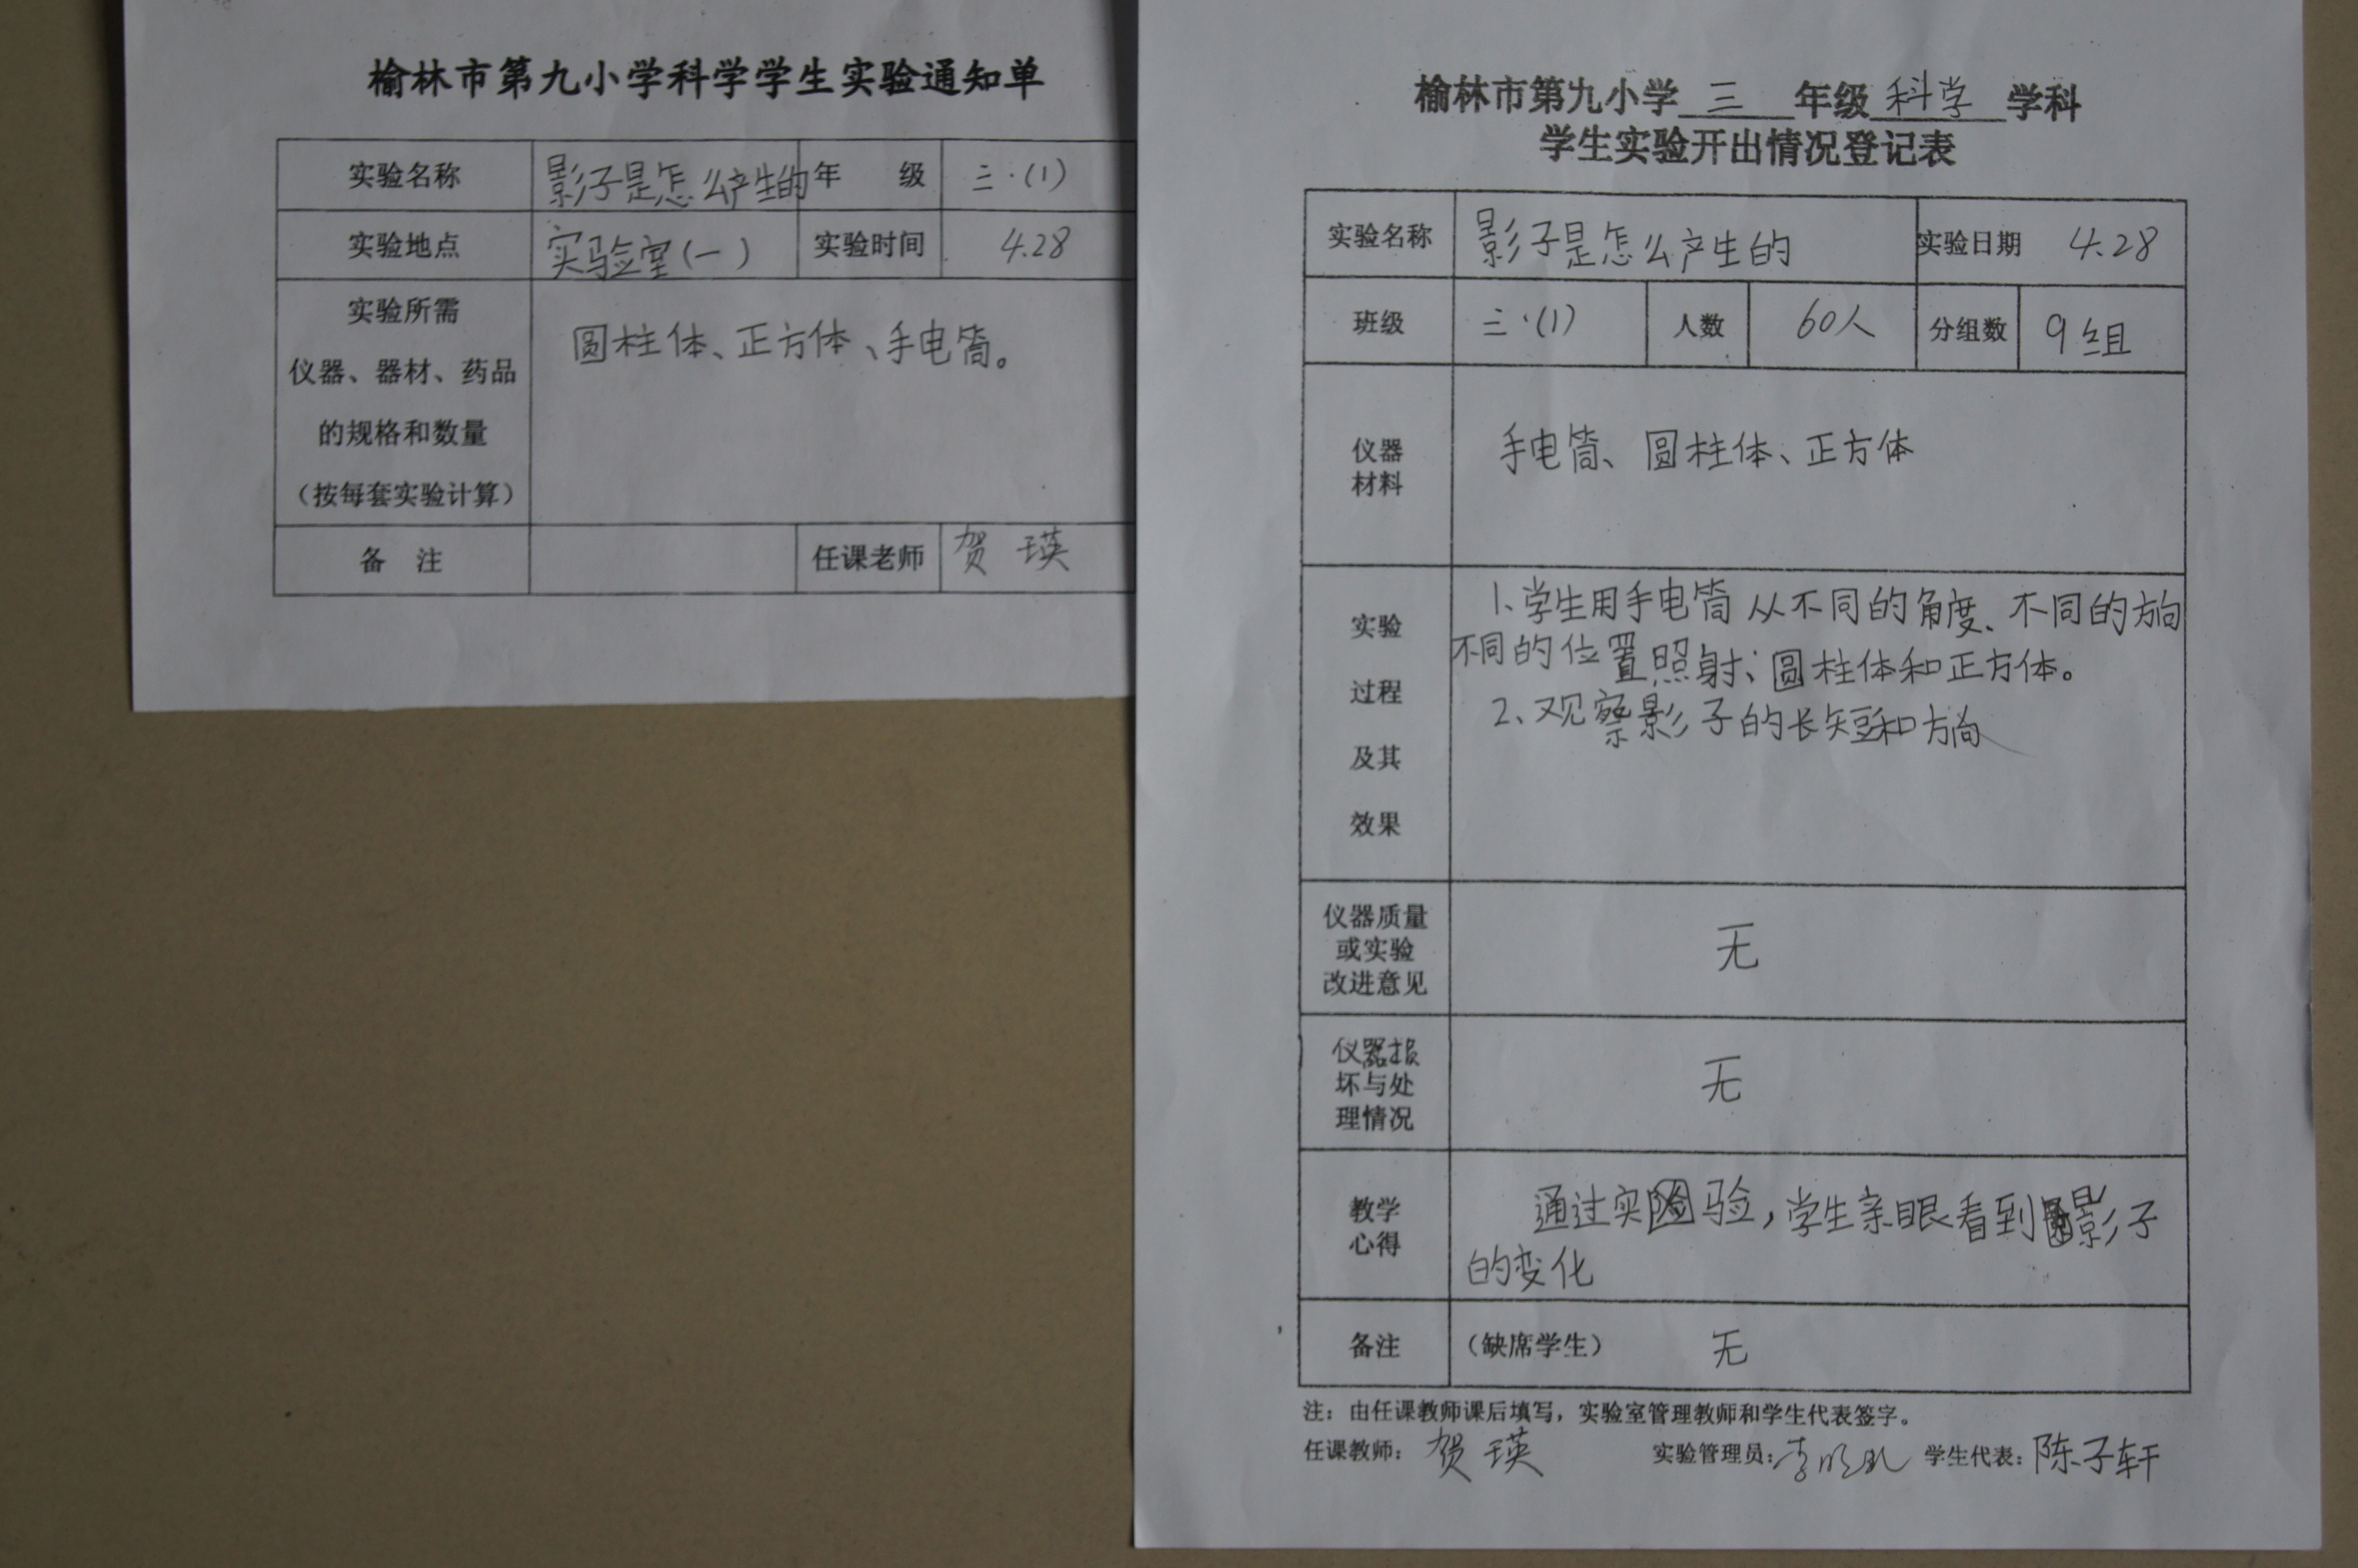 榆林市第九小学科学学生实验通知单
实验名称 影子是怎么产生的 年 级 三·(1)
实验地点 实验室(一) 实验时间 4.28
实验所需
仪器、器材、药品
的规格和数量
(按每套实验计算)
圆柱体、正方体、手电筒。
备 注 任课老师 贺 瑛
榆林市第九小学 三 年级 科学 学科
学生实验开出情况登记表
实验名称 影子是怎么产生的 实验日期 4.28
班级 三·(1) 人数 60人 分组数 9组
仪器
材料
手电筒、圆柱体、正方体
实验
过程
及其
效果
1、学生用手电筒从不同的角度、不同的方向
不同的位置照射;圆柱体和正方体。
2、观察影子的长短和方向
仪器质量
或实验
改进意见
无
仪器损
坏与处
理情况
无
教学
心得
通过实验,学生亲眼看到影子
的变化
备注 (缺席学生) 无
注:由任课教师课后填写,实验室管理教师和学生代表签字。
任课教师: 贺 瑛 实验管理员: 学生代表: 陈子轩